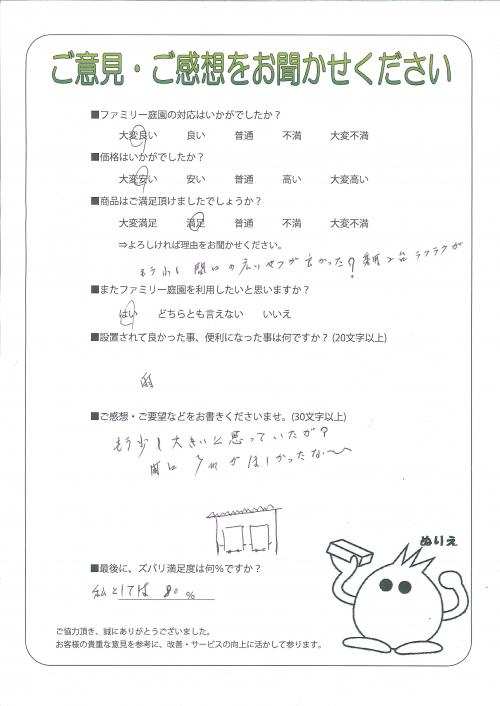 ご意見・ご感想をお聞かせください
■ファミリー庭園の対応はいかがでしたか?
大変良い 良い 普通 不満 大変不満
■価格はいかがでしたか?
大変安い 安い 普通 高い 大変高い
■商品はご満足頂けましたでしょうか?
大変満足 満足 普通 不満 大変不満
⇒よろしければ理由をお聞かせください。
もう少し間口の広いやつが良かった? 2台ラクラクが
■またファミリー庭園を利用したいと思いますか?
はい どちらとも言えない いいえ
■設置されて良かった事、便利になった事は何ですか? (20文字以上)
雨
■ご感想・ご要望などをお書きくださいませ。(30文字以上)
もう少し大きいと思っていたが?
間口 がほしかったな〜
ぬりえ
■最後に、ズバリ満足度は何%ですか?
私としては 80 %
ご協力頂き、誠にありがとうございました。
お客様の貴重な意見を参考に、改善・サービスの向上に活かして参ります。